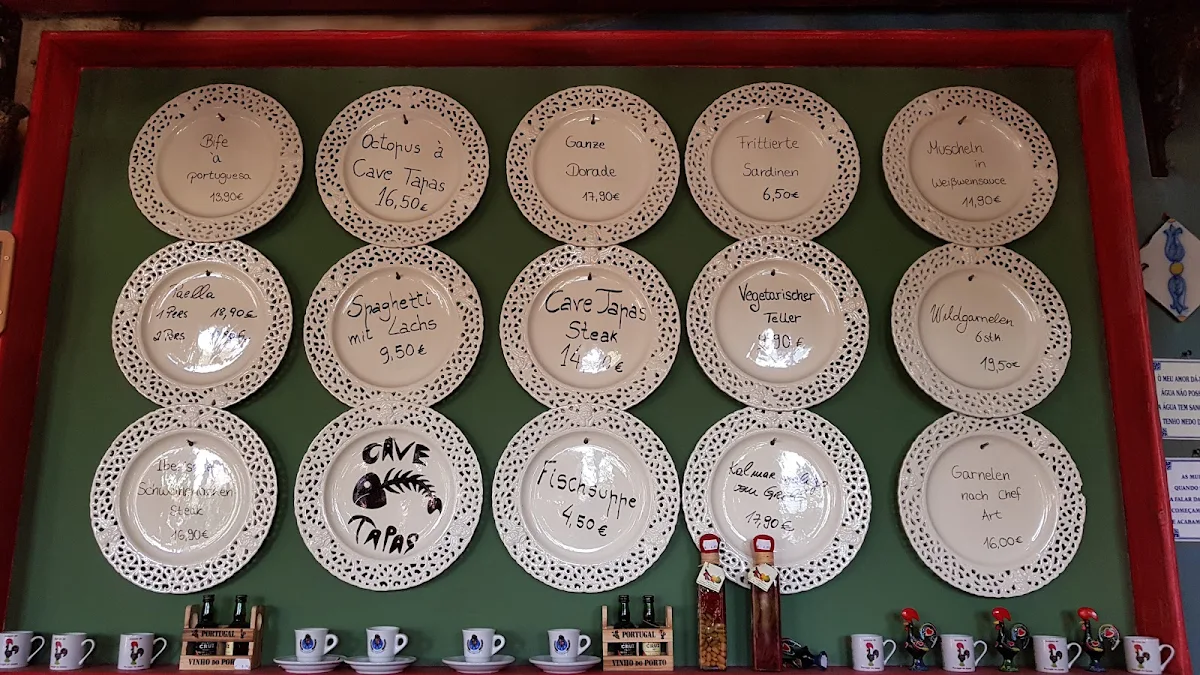 Bife
à
portuguesa
13,90€
Octopus à
Cave Tapas
16,50€
Ganze
Dorade
17,90€
Frittierte
Sardinen
6,50€
Muscheln
in
Weißweinsauce
11,90€
Paella
1 Pers 18,90€
2 Pers
Spaghetti
mit Lachs
9,50€
Cave Tapas
Steak
Vegetarischer
Teller
Wildgarnelen
6 stk
19,50€
Steak
16,90€
CAVE
TAPAS
Fischsuppe
4,50€
Kalmar
17,90€
Garnelen
nach Chef
Art
16,00€
PORTUGAL
CRUZ
PORTUGAL
CRUZ
VINHO DO PORTO
O MEU AMOR DÁ
ÁGUA NÃO POSS
A ÁGUA TEM SAN
TENHO MEDO D
AS MU
QUANDO
A FALAR DA
COMEÇAM
E ACABAM